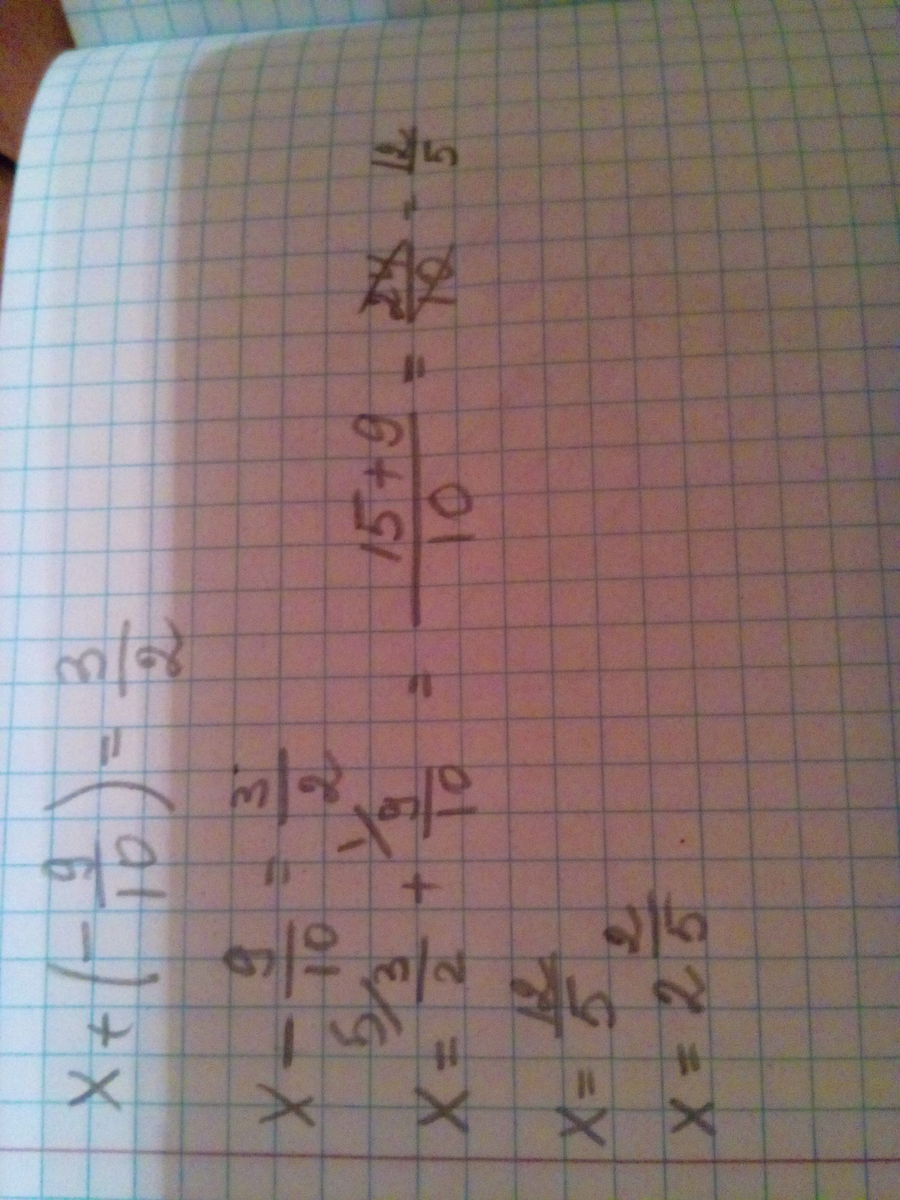 x + (- 9/10) = 3/2
x - 9/10 = 3/2
x = 5/ 3/2 + 1/ 9/10 = (15+9)/10 = 24/10 - 12/5
x = 12/5
x = 2 2/5